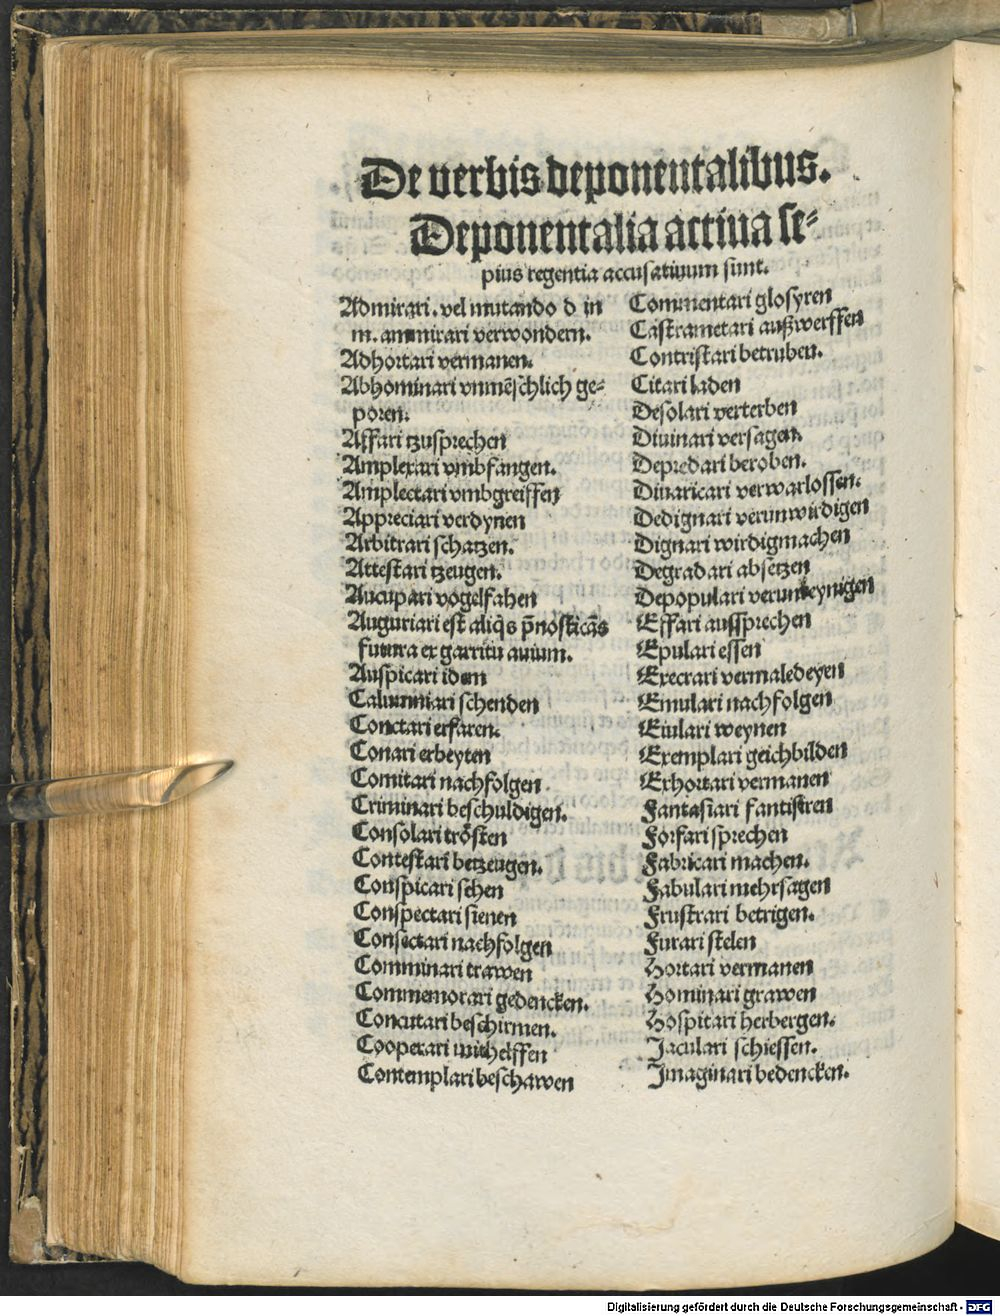 De verbis deponentalibus.
Deponentalia actiua se⸗
pius regentia accusatiuum sunt.
Admirari. vel mutando d in
m. ammirari verwondern.
Adhortari vermanen.
Abhominari vnmēschlich ge⸗
poren.
Affari tzusprechen
Amplexari vmbfangen.
Amplectari vmbgreiffen
Appreciari verdynen
Arbitrari schatzen.
Attestari tzeugen.
Aucupari vogelfahen
Auguriari est aliq̄s p̄nosticās
futura ex garritu auium.
Auspicari idem
Calumniari schenden
Conctari erfaren.
Conari erbeyten
Comitari nachfolgen.
Criminari beschuldigen.
Consolari trösten
Contestari betzeugen.
Conspicari sehen
Conspectari sienen
Consectari nachfolgen
Comminari trawen
Commemorari gedencken.
Concutari beschirmen.
Cooperari mithelffen
Contemplari beschawen
Commentari glosyren
Castrametari außwerffen
Contristari betruben.
Citari laden
Desolari verterben
Diuinari versagen.
Depredari beroben.
Diuaricari verwarlossen.
Dedignari verunwirdigen
Dignari wirdigmachen
Degradari absetzen
Depopulari verunreynigen
Effari aussprechen
Epulari essen
Execrari vermaledeyen
Emulari nachfolgen
Eiulari weynen
Exemplari geichbilden
Exhortari vermanen
Fantasiari fantistren
Forfari sprechen
Fabricari machen.
Fabulari mehrsagen
Frustrari betrigen.
Furari stelen
Hortari vermanen
Hominari grawen
Hospitari herbergen.
Jaculari schiessen.
Jmaginari bedencken.
Digitalisierung gefördert durch die Deutsche Forschungsgemeinschaft - DFG